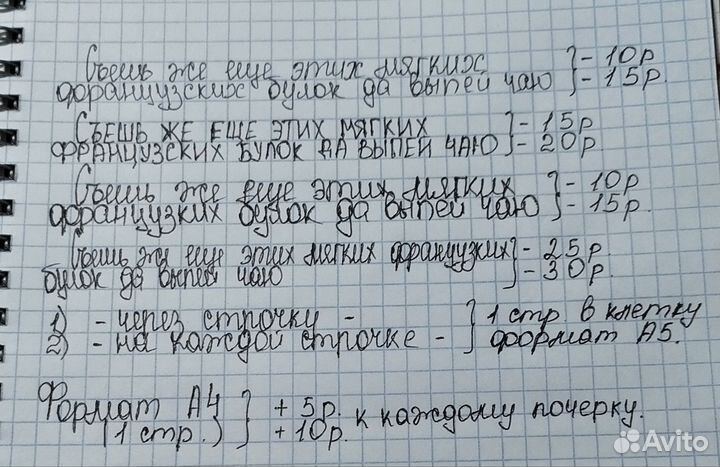 Съешь же еще этих мягких } - 10р
французских булок да выпей чаю } - 15р.
СЪЕШЬ ЖЕ ЕЩЕ ЭТИХ МЯГКИХ } - 15р
ФРАНЦУЗСКИХ БУЛОК ДА ВЫПЕЙ ЧАЮ } - 20р.
Съешь же еще этих мягких } - 10р
французких булок да выпей чаю } - 15р.
Съешь же еще этих мягких французких } - 25р.
булок да выпей чаю } - 30р.
1) - через строчку - } 1 стр. в клетку
2) - на каждой строчке - } формат А5.
Формат А4 } + 5р. к каждому почерку.
(1 стр.) } + 10р.
Avito